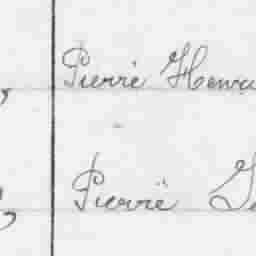 Pierre Henri
Pierre